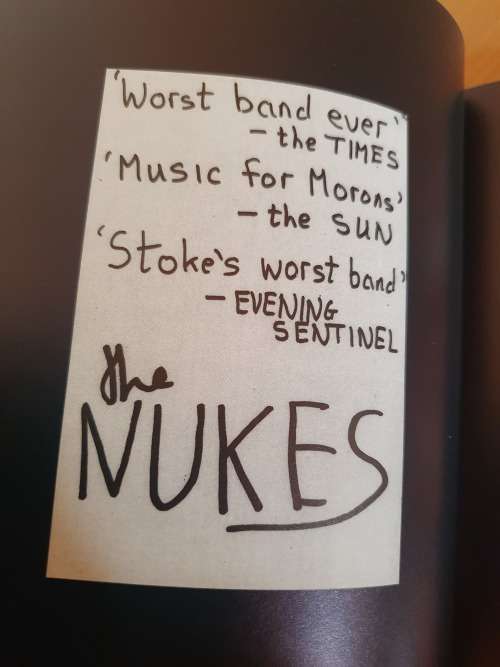 'Worst band ever'
- the TIMES
'Music for Morons'
- the SUN
'Stoke's worst band'
- EVENING
SENTINEL
the
NUKES